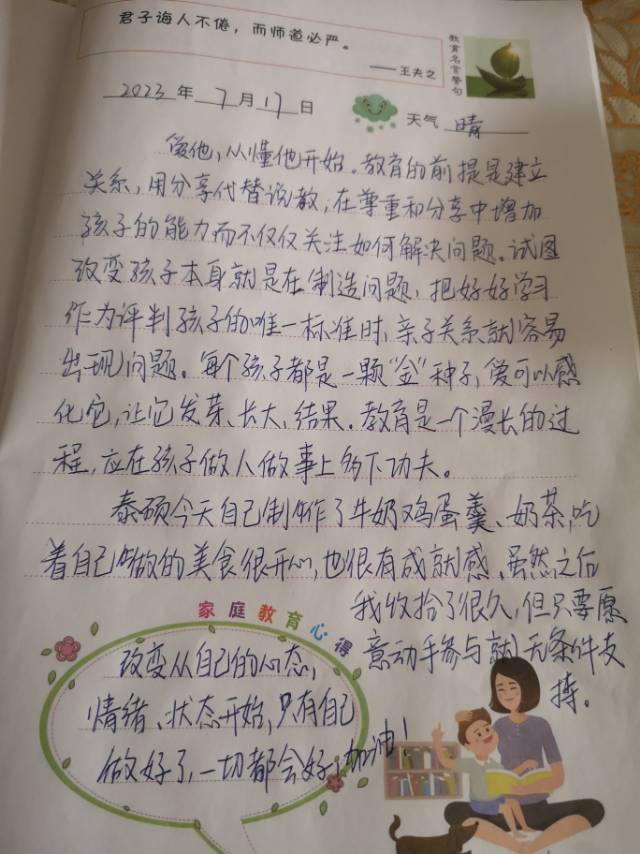 君子诲人不倦，而师道必严。
——王夫之
教育名言警句
2023年7月17日
天气 晴
爱他，从懂他开始。教育的前提是建立
关系，用分享代替说教，在尊重和分享中增加
孩子的能力而不仅仅关注如何解决问题。试图
改变孩子本身就是在制造问题，把好好学习
作为评判孩子的唯一标准时，亲子关系就容易
出现问题。每个孩子都是一颗“金”种子，爱可以感
化它，让它发芽、长大、结果。教育是一个漫长的过
程，应在孩子做人做事上多下功夫。
泰硕今天自己制作了牛奶鸡蛋羹、奶茶，吃
着自己做的美食很开心，也很有成就感，虽然之后
我收拾了很久，但只要愿
意动手参与就无条件支
持。
家庭教育心得
改变从自己的心态，
情绪、状态开始，只有自己
做好了，一切都会好！加油！